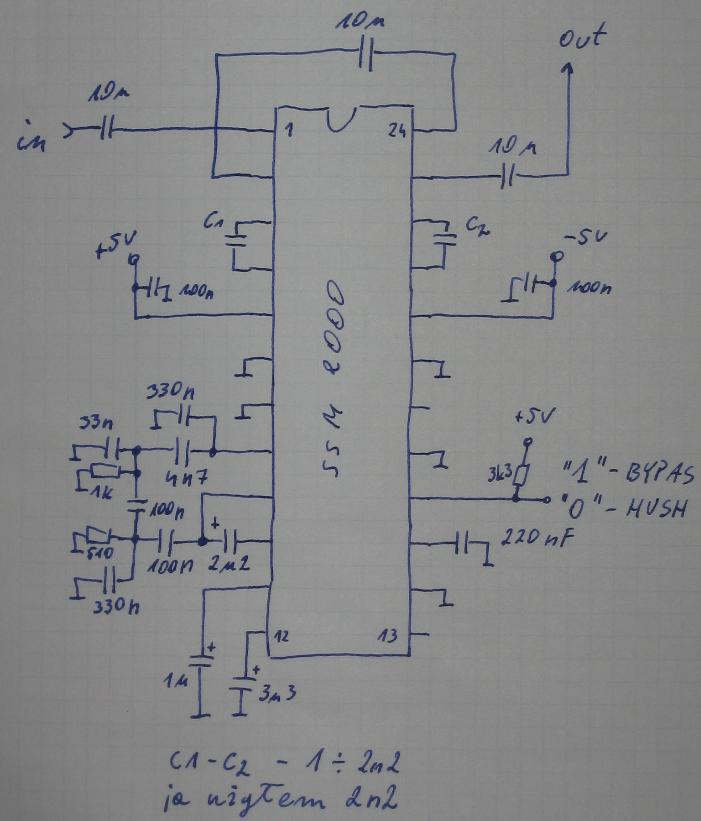 10n
out
10n
in
1
24
10n
C1
C2
+5V
-5V
100n
100n
SSM 2000
330n
33n
+5V
4n7
3k3
"1"-BYPAS
1k
100n
"0"-HUSH
+
220nF
510
100n
2µ2
330n
12
13
+
+
1µ
3µ3
C1-C2 - 1÷2n2
ja użyłem 2n2